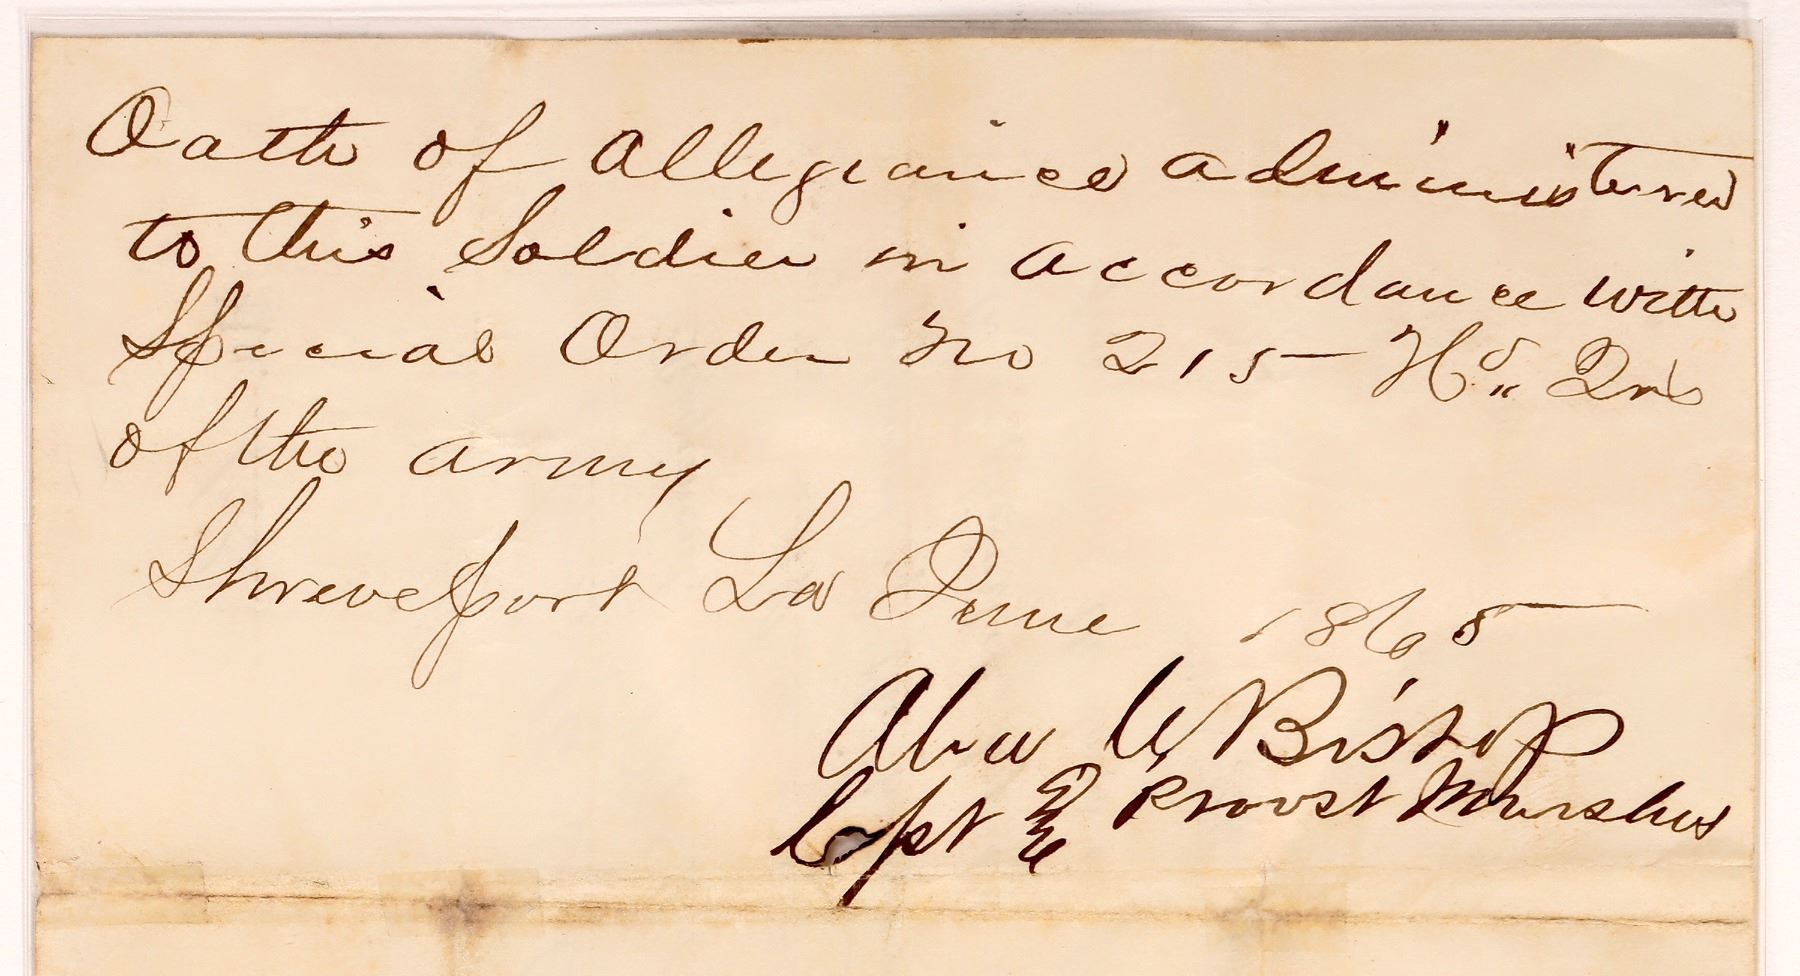 Oath of Allegiance administered
to this Soldier in accordance with
Special Order No 215 Hd. Qrs
of the army
Shreveport La June 1865
Bishop
Capt & Provost Marshal